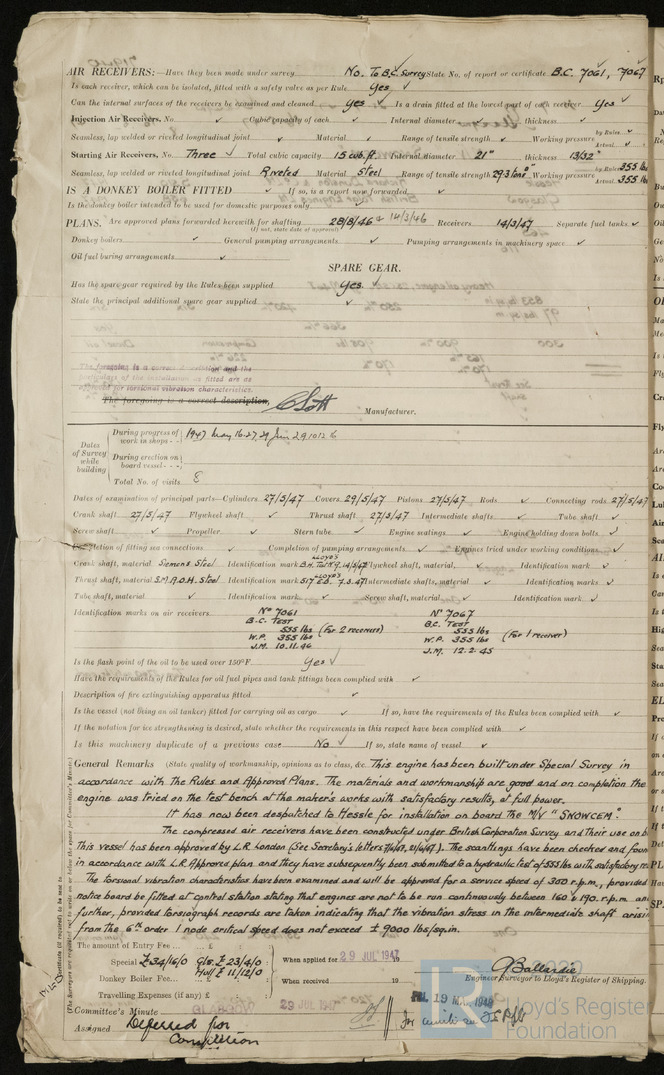 AIR RECEIVERS:—Have they been made under survey No. To B.C. Survey State No. of report or certificate B.C. 7061, 7067
Is each receiver, which can be isolated, fitted with a safety valve as per Rule Yes
Can the internal surfaces of the receivers be examined and cleaned Yes Is a drain fitted at the lowest part of each receiver Yes
Injection Air Receivers, No. Cubic capacity of each Internal diameter thickness
Seamless, lap welded or riveted longitudinal joint Material Range of tensile strength Working pressure by Rules Actual
Starting Air Receivers, No. Three Total cubic capacity 15 cub. ft. Internal diameter 21" thickness 13/32"
Seamless, lap welded or riveted longitudinal joint Riveted Material Steel Range of tensile strength 29.3 tons Working pressure by Rules 355 lbs Actual 355 lbs
IS A DONKEY BOILER FITTED If so, is a report now forwarded
Is the donkey boiler intended to be used for domestic purposes only
PLANS. Are approved plans forwarded herewith for shafting 28/8/46 & 14/3/46 Receivers 14/3/47 Separate fuel tanks
(If not, state date of approval)
Donkey boilers General pumping arrangements Pumping arrangements in machinery space
Oil fuel burning arrangements
SPARE GEAR.
Has the spare gear required by the Rules been supplied Yes.
State the principal additional spare gear supplied
The foregoing is a correct description and the
particulars of the installation as fitted are as
approved for torsional vibration characteristics.
The foregoing is a correct description,
Manufacturer.
Dates of Survey while building
During progress of work in shops - - 1947 May 16. 27, 29 Jun 2 9 10 12 6
During erection on board vessel - - -
Total No. of visits 8
Dates of examination of principal parts—Cylinders 27/5/47 Covers 29/5/47 Pistons 27/5/47 Rods Connecting rods 27/5/47
Crank shaft 27/5/47 Flywheel shaft Thrust shaft 27/5/47 Intermediate shafts Tube shaft
Screw shaft Propeller Stern tube Engine seatings Engine holding down bolts
Completion of fitting sea connections Completion of pumping arrangements Engines tried under working conditions
Crank shaft, material Siemens Steel Identification mark LLOYD'S Flywheel shaft, material Identification mark
Thrust shaft, material S.M.A.O.H. Steel Identification mark LLOYD'S 517 E.B. 7.3.47 Intermediate shafts, material Identification marks
Tube shaft, material Identification mark Screw shaft, material Identification mark
Identification marks on air receivers No 7061 No 7067
B.C. TEST B.C. TEST
555 lbs (For 2 receivers) 555 lbs (For 1 receiver)
W.P. 355 lbs W.P. 355 lbs
J.M. 10.11.46 J.M. 12.2.45
Is the flash point of the oil to be used over 150°F Yes
Have the requirements of the Rules for oil fuel pipes and tank fittings been complied with
Description of fire extinguishing apparatus fitted
Is the vessel (not being an oil tanker) fitted for carrying oil as cargo If so, have the requirements of the Rules been complied with
If the notation for ice strengthening is desired, state whether the requirements in this respect have been complied with
Is this machinery duplicate of a previous case No If so, state name of vessel
General Remarks (State quality of workmanship, opinions as to class, &c. This engine has been built under Special Survey in
accordance with the Rules and Approved Plans. The materials and workmanship are good and on completion the
engine was tried on the test bench at the maker's works with satisfactory results, at full power.
It has now been despatched to Hessle for installation on board the M/V "SNOWCEM".
The compressed air receivers have been constructed under British Corporation Survey and their use on b
This vessel has been approved by L.R. London (See Secretary's letters The scantlings have been checked and foun
in accordance with L.R. Approved plan and they have subsequently been submitted to a hydraulic test of 555 lbs with satisfactory re
The torsional vibration characteristics have been examined and will be approved for a service speed of 300 r.p.m., provided
notice board be fitted at control station stating that engines are not to be run continuously between 160 & 190. r.p.m. an
further, provided torsiograph records are taken indicating that the vibration stress in the intermediate shaft arisin
from the 6th order 1 node critical speed does not exceed ± 9000 lbs/sq.in.
The amount of Entry Fee .. £
Special £34/16/0 Gls. £23/4/0 Hull £11/12/0 When applied for 29 JUL 1947
Donkey Boiler Fee... £ When received 19
Travelling Expenses (if any) £
Engineer Surveyor to Lloyd's Register of Shipping.
Committee's Minute GLASGOW 29 JUL 1947
FRI. 19 MAR 1948
Assigned Deferred for
Completion
Lloyd's Register
Foundation